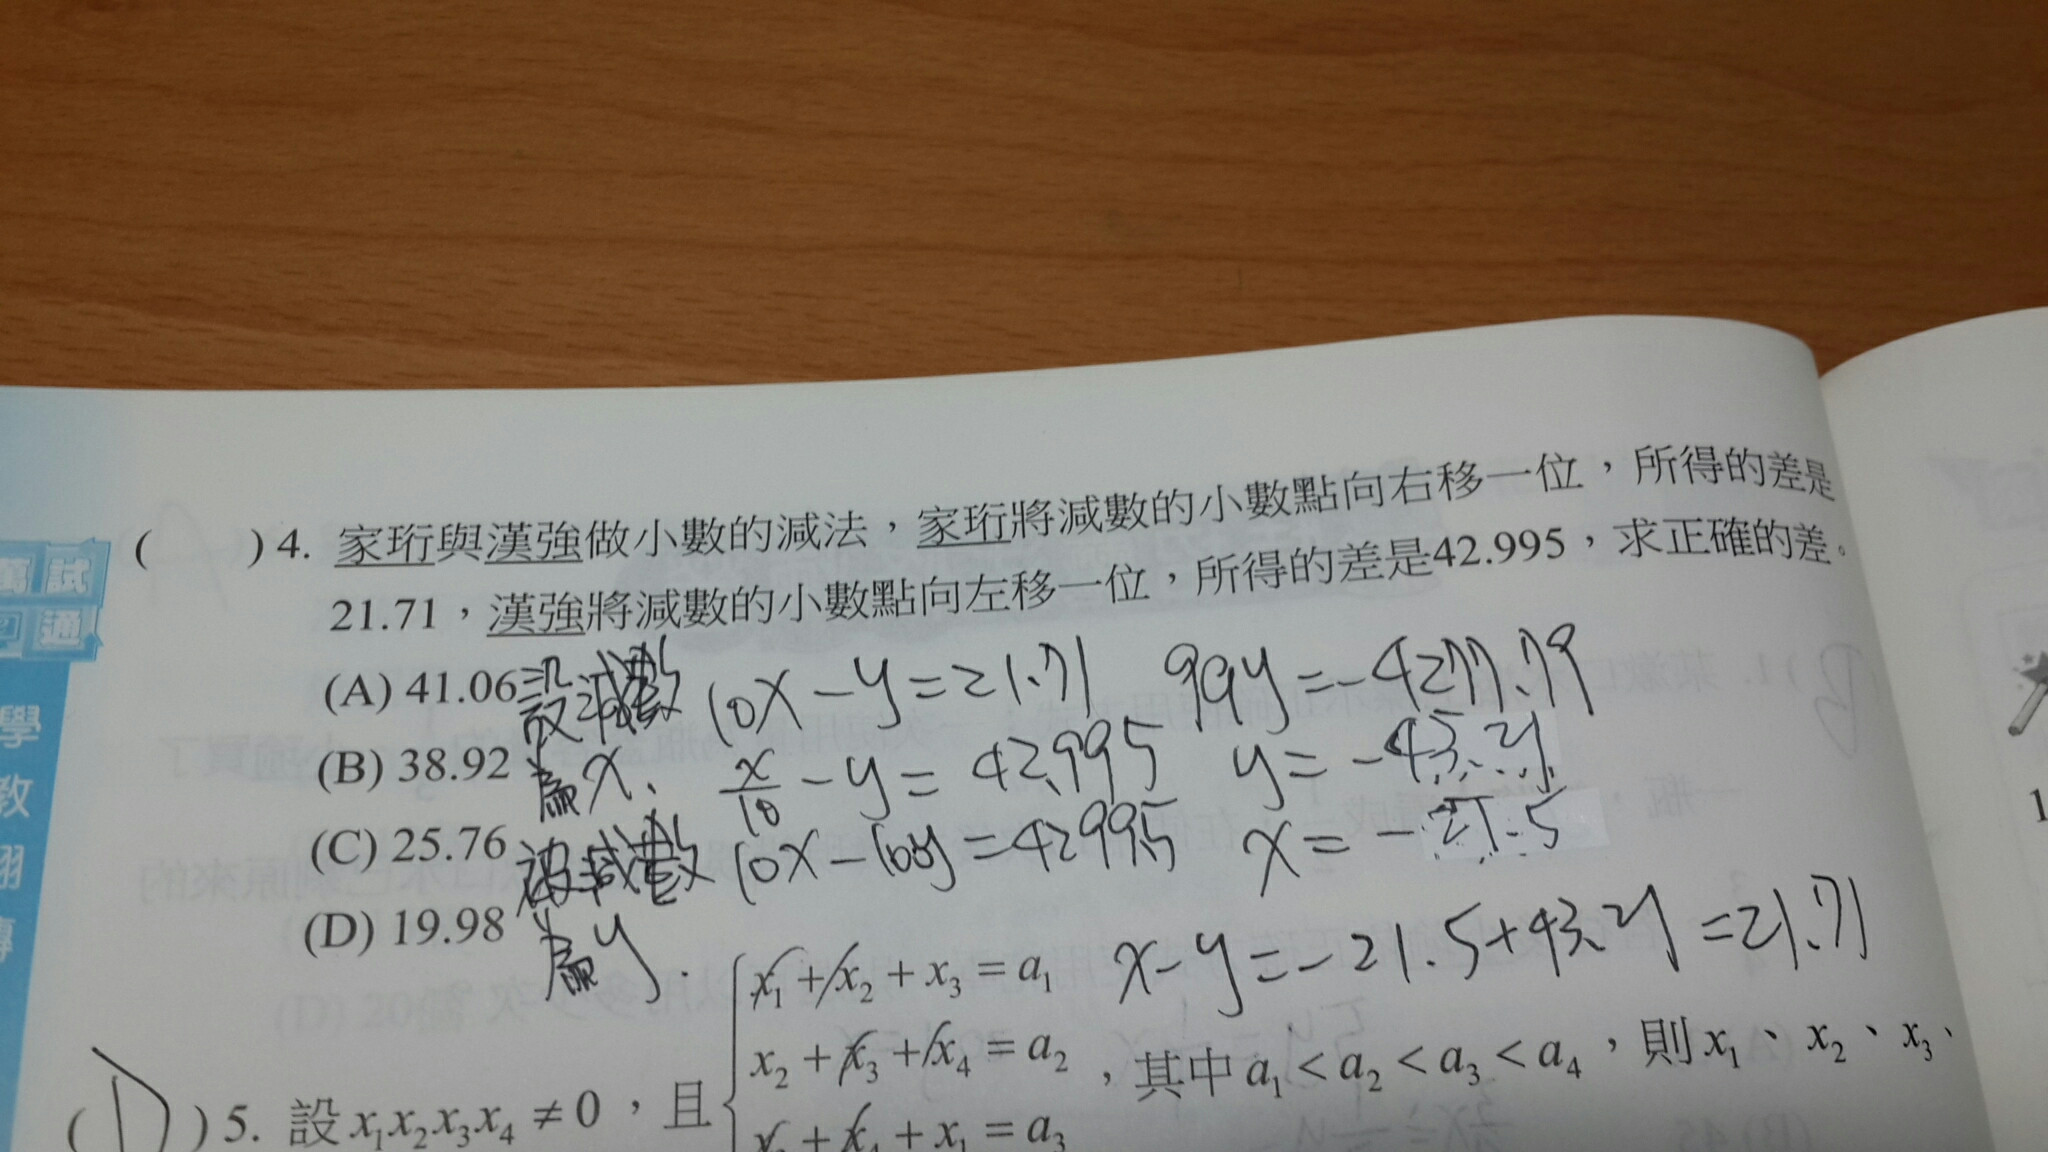 ( ) 4. 家珩與漢強做小數的減法，家珩將減數的小數點向右移一位，所得的差是
21.71，漢強將減數的小數點向左移一位，所得的差是42.995，求正確的差。
(A) 41.06
(B) 38.92
(C) 25.76
(D) 19.98
設減數
為x.
被減數
為y.
10x-y=21.71
x/10-y=42.995
10x-100y=4299.5
99y=-4277.79
y=-43.21
x=-21.5
x-y=-21.5+43.21=21.71
(D) 5. 設x₁x₂x₃x₄≠0，且
x₁+x₂+x₃=a₁
x₂+x₃+x₄=a₂
x₃+x₄+x₁=a₃
，其中a₁<a₂<a₃<a₄，則x₁、x₂、x₃、
試
通
學
教